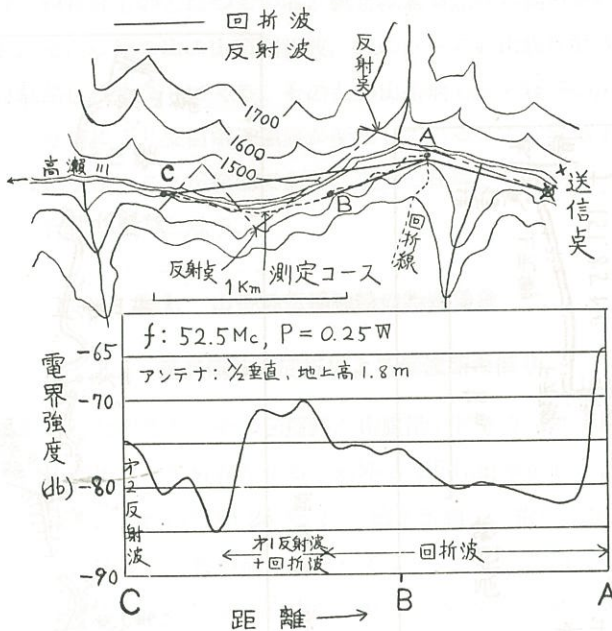 回折波
反射波
反射点
1700
1600
1500
高瀬川
C
A
B
送信点
回折線
反射点
測定コース
1Km
f: 52.5Mc, P=0.25W
アンテナ: λ/2垂直、地上高1.8m
電界強度(db)
-65
-70
-80
-90
才2反射波
才1反射波
+回折波
回折波
C
B
A
距離